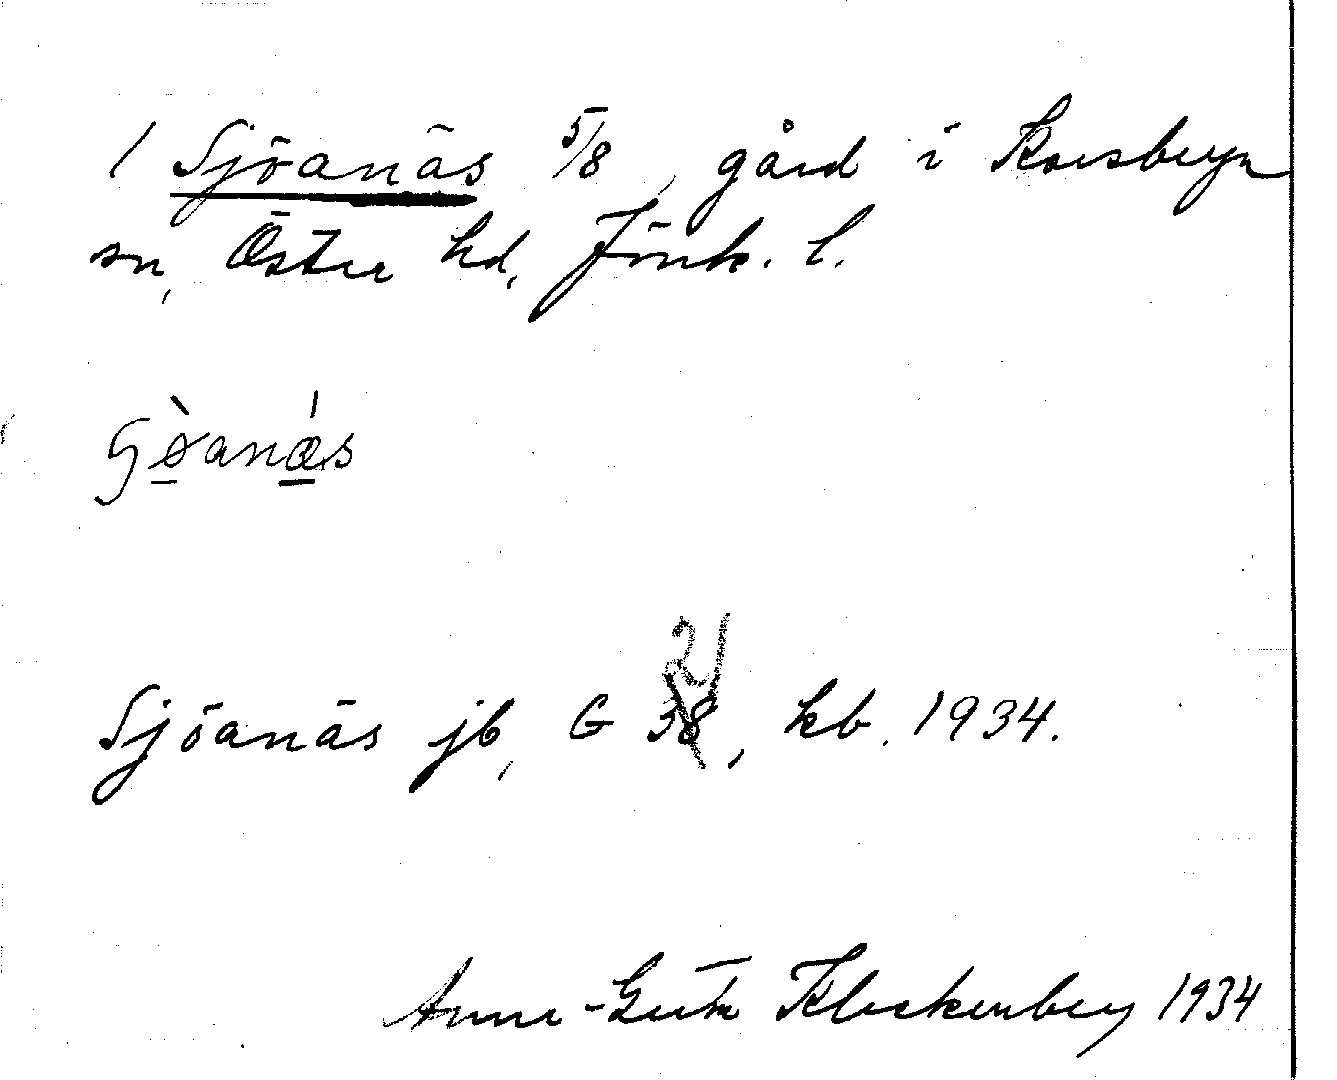 1 Sjöanäs 5/8, gård i Korsberga
sn, Östra hd, Jönk. l.
Sjöanäs jb, G 38, kb. 1934.
Anna-Greta Klockenberg 1934